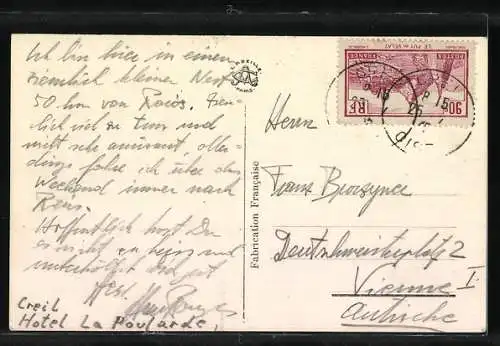 Ich bin hier in einem
ziemlich kleinen Nest
50 km von Paris. Ziem-
lich viel zu tun und
nicht sehr amüsant aller-
dings fahre ich über das
Weekend immer nach
Paris.
Hoffentlich hast Du
es nicht zu heiss und
unterhältst Dich gut
Creil
Hotel La Poularde,
Fabrication Française
Herrn
Franz
Deutschmeisterplatz 2
Vienne I
Autriche
POSTES FRANCE
LE PUY EN VELAY
90c RF